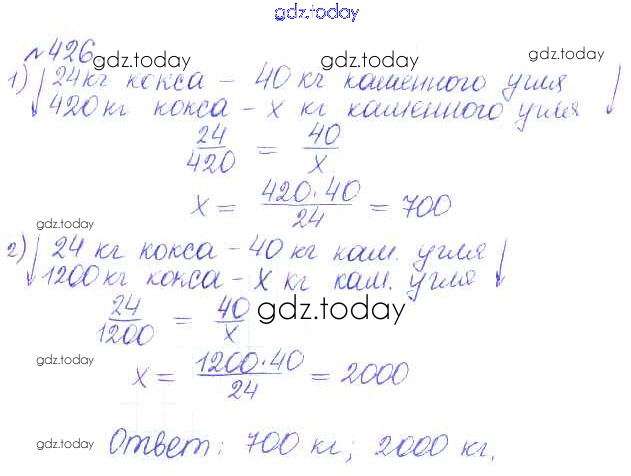 gdz.today
№426
gdz.today gdz.today
1) ↓ 24 кг кокса – 40 кг каменного угля
420 кг кокса – x кг каменного угля ↓
24/420 = 40/x
x = 420·40/24 = 700
gdz.today
2) ↓ 24 кг кокса – 40 кг кам. угля ↓
1200 кг кокса – x кг кам. угля
24/1200 = 40/x
gdz.today
gdz.today
x = 1200·40/24 = 2000
gdz.today
Ответ: 700 кг; 2000 кг.